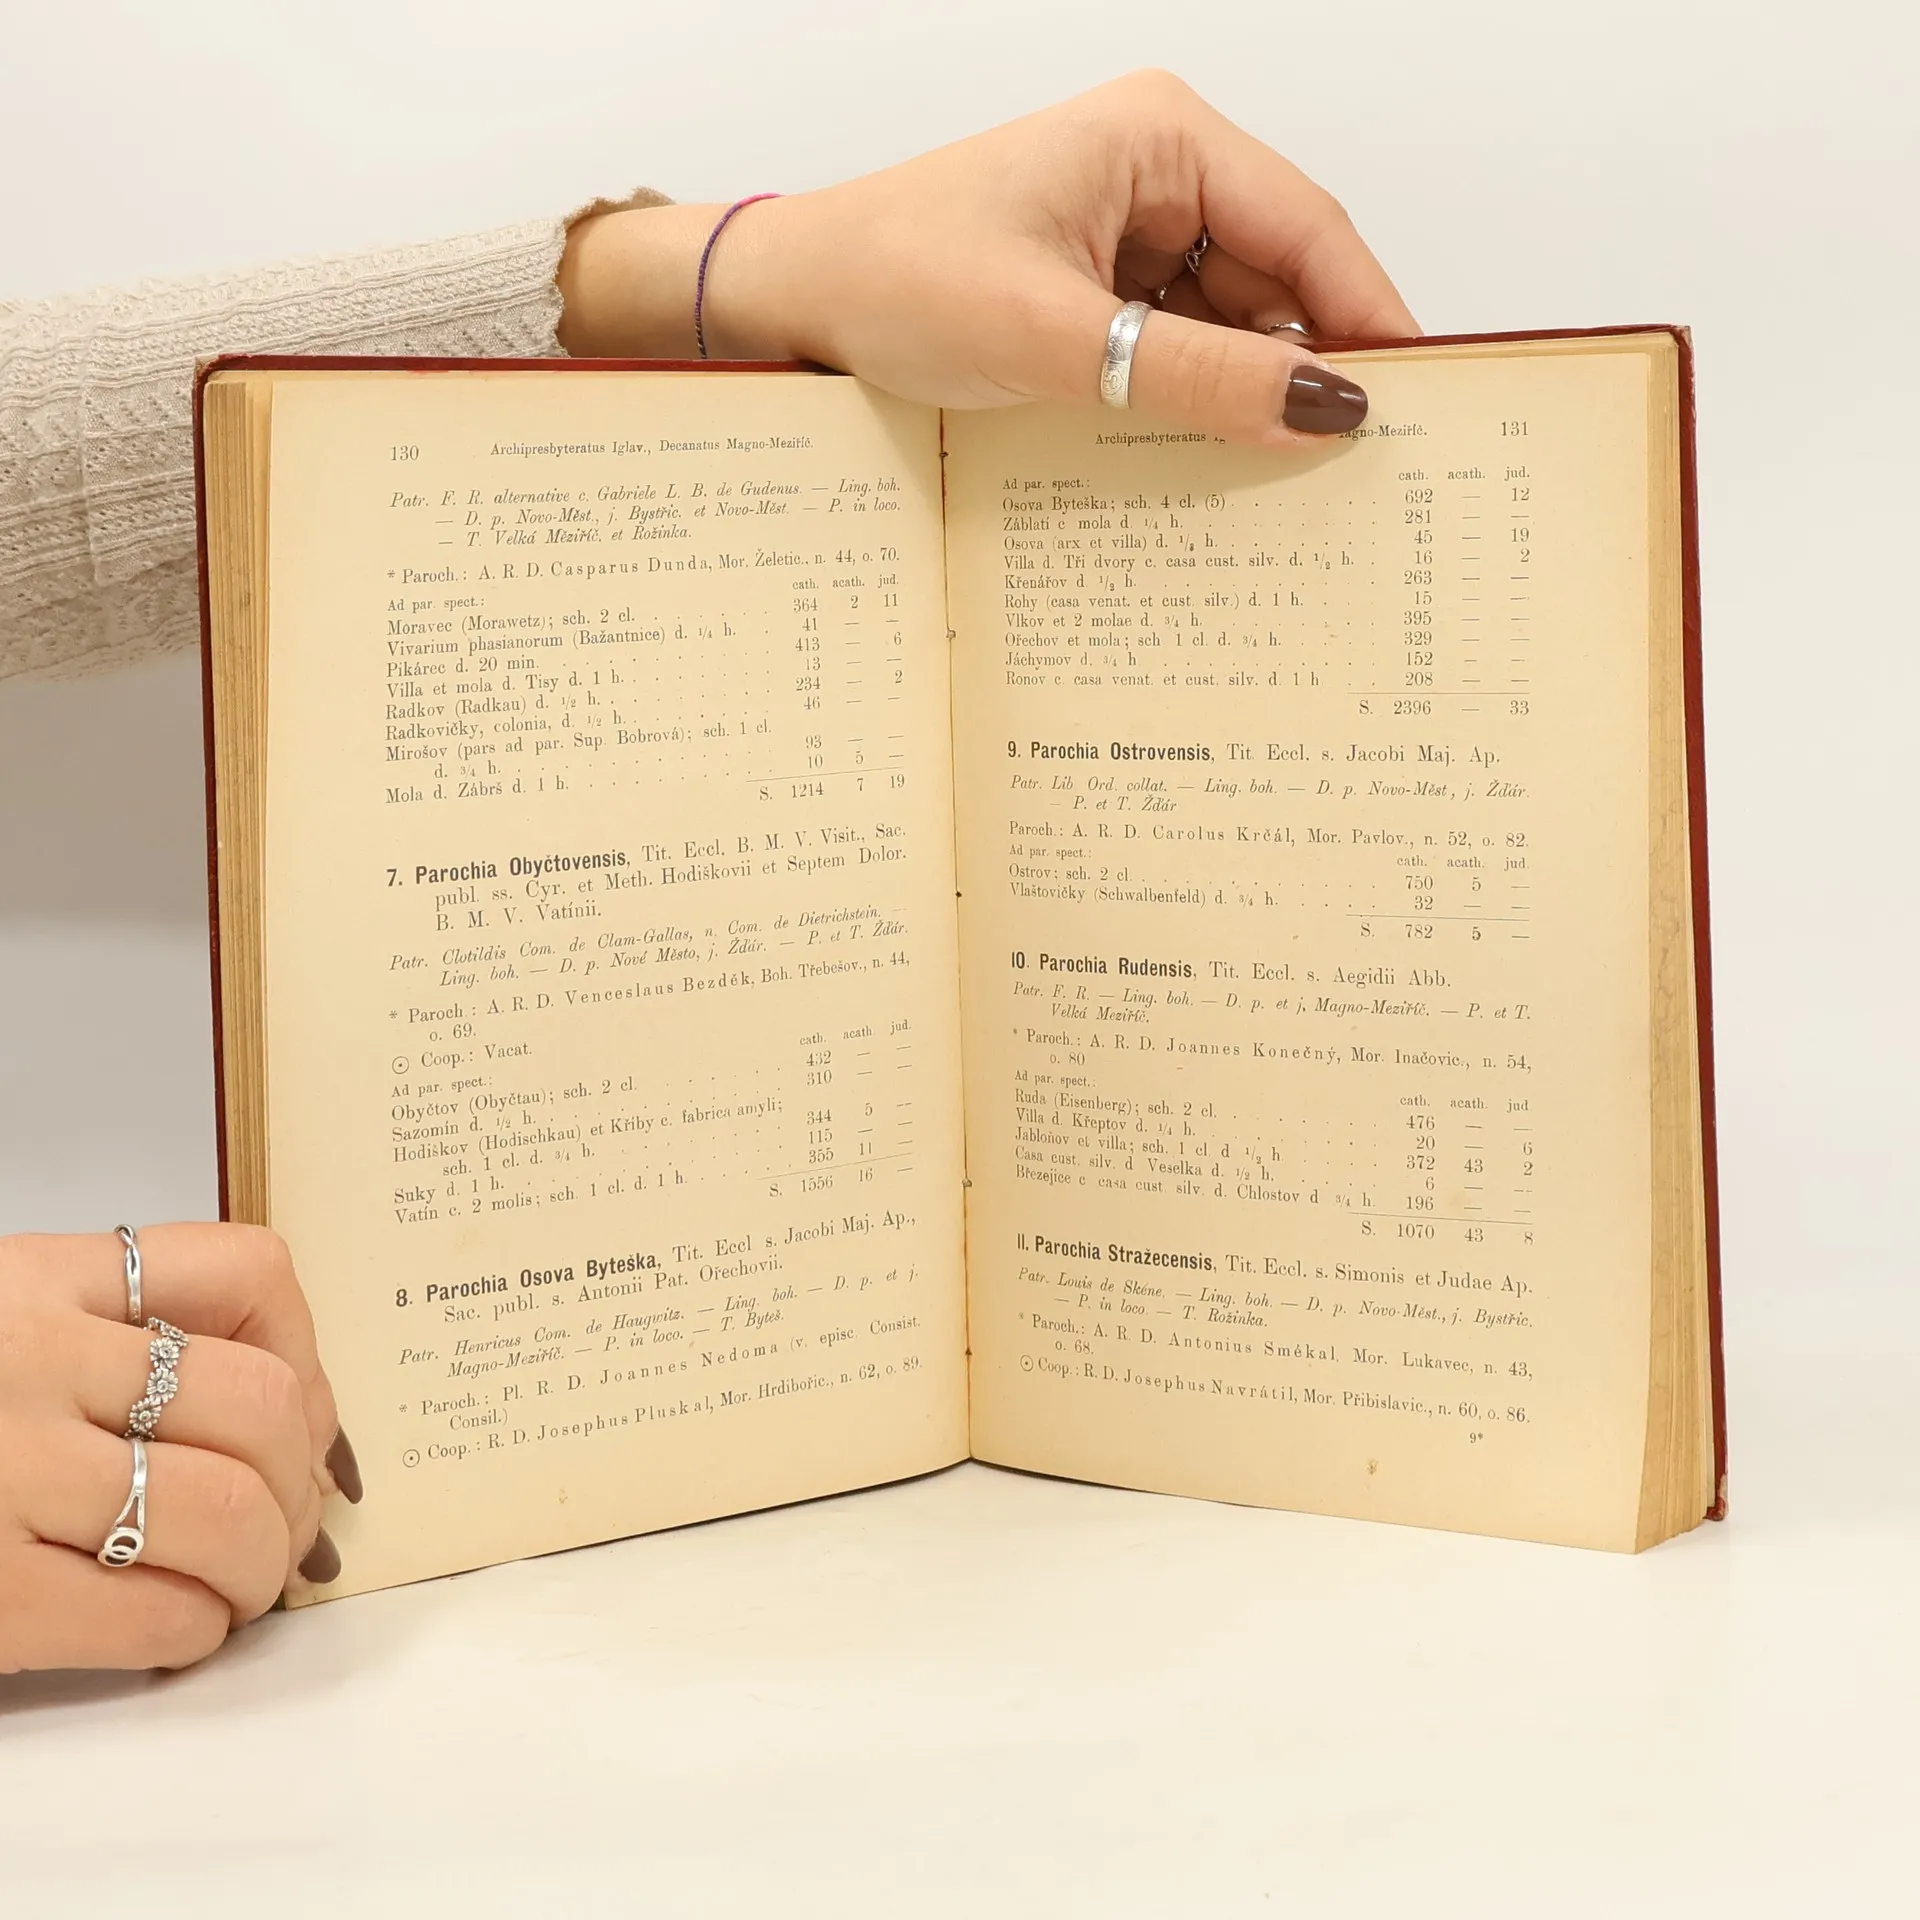 130 Archipresbyteratus Iglav., Decanatus Magno-Meziříč.
Patr. F. R. alternative c. Gabriele L. B. de Gudenus. — Ling. boh.
— D. p. Novo-Měst., j. Bystřic. et Novo-Měst. — P. in loco.
— T. Velká Měziříč. et Rožinka.
* Paroch.: A. R. D. Casparus Dunda, Mor. Želetic., n. 44, o. 70.
Ad par. spect.: cath. acath. jud.
Moravec (Morawetz); sch. 2 cl. 364 2 11
Vivarium phasianorum (Bažantnice) d. 1/4 h. 41 — —
Pikárec d. 20 min. 413 — 6
Villa et mola d. Tisy d. 1 h. 13 — —
Radkov (Radkau) d. 1/2 h. 234 — 2
Radkovičky, colonia, d. 1/2 h. 46 — —
Mirošov (pars ad par. Sup. Bobrová); sch. 1 cl.
d. 3/4 h. 93 — —
Mola d. Zábrš d. 1 h. 10 5 —
S. 1214 7 19
7. Parochia Obyčtovensis, Tit. Eccl. B. M. V. Visit., Sac.
publ. ss. Cyr. et Meth. Hodiškovii et Septem Dolor.
B. M. V. Vatínii.
Patr. Clotildis Com. de Clam-Gallas, n. Com. de Dietrichstein. —
Ling. boh. — D. p. Nové Město, j. Žďár. — P. et T. Žďár.
* Paroch.: A. R. D. Venceslaus Bezděk, Boh. Třebešov., n. 44,
o. 69.
☉ Coop.: Vacat.
Ad par. spect.: cath. acath. jud.
Obyčtov (Obyčtau); sch. 2 cl. 432 — —
Sazomín d. 1/2 h. 310 — —
Hodiškov (Hodischkau) et Kříby c. fabrica amyli;
sch. 1 cl. d. 3/4 h. 344 5 —
Suky d. 1 h. 115 — —
Vatín c. 2 molis; sch. 1 cl. d. 1 h. 355 11 —
S. 1556 16 —
8. Parochia Osova Byteška, Tit. Eccl s. Jacobi Maj. Ap.,
Sac. publ. s. Antonii Pat. Ořechovii.
Patr. Henricus Com. de Haugwitz. — Ling. boh. — D. p. et j.
Magno-Meziříč. — P. in loco. — T. Byteš.
* Paroch.: Pl. R. D. Joannes Nedoma (v. episc. Consist.
Consil.)
☉ Coop.: R. D. Josephus Pluskal, Mor. Hrdibořic., n. 62, o. 89.
Archipresbyteratus Magno-Meziříč. 131
Ad par. spect.: cath. acath. jud.
Osova Byteška; sch. 4 cl. (5) 692 — 12
Záblatí c mola d. 1/4 h. 281 — —
Osova (arx et villa) d. 1/8 h. 45 — 19
Villa d. Tři dvory c. casa cust. silv. d. 1/2 h. 16 — 2
Křenářov d. 1/2 h. 263 — —
Rohy (casa venat. et cust. silv.) d. 1 h. 15 — —
Vlkov et 2 molae d. 3/4 h. 395 — —
Ořechov et mola; sch 1 cl. d. 3/4 h. 329 — —
Jáchymov d. 3/4 h 152 — —
Ronov c. casa venat. et cust. silv. d. 1 h 208 — —
S. 2396 — 33
9. Parochia Ostrovensis, Tit. Eccl. s. Jacobi Maj. Ap.
Patr. Lib Ord. collat. — Ling. boh. — D. p. Novo-Měst, j. Žďár.
— P. et T. Žďár
Paroch.: A. R. D. Carolus Krčál, Mor. Pavlov., n. 52, o. 82.
Ad par. spect.: cath. acath. jud.
Ostrov; sch. 2 cl. 750 5 —
Vlaštovičky (Schwalbenfeld) d. 3/4 h. 32 — —
S. 782 5 —
10. Parochia Rudensis, Tit. Eccl. s. Aegidii Abb.
Patr. F. R. — Ling. boh. — D. p. et j. Magno-Meziříč. — P. et T.
Velká Meziříč.
* Paroch.: A. R. D. Joannes Konečný, Mor. Inačovic., n. 54,
o. 80
Ad par. spect.: cath. acath. jud
Ruda (Eisenberg); sch. 2 cl. 476 — —
Villa d. Křeptov d. 1/4 h. 20 — 6
Jabloňov et villa; sch. 1 cl d 1/2 h 372 43 2
Casa cust. silv. d Veselka d. 1/2 h. 6 — —
Březejice c casa cust silv. d. Chlostov d 3/4 h. 196 — —
S. 1070 43 8
11. Parochia Stražecensis, Tit. Eccl. s. Simonis et Judae Ap.
Patr. Louis de Skéne. — Ling. boh. — D. p. Novo-Měst., j. Bystřic.
— P. in loco. — T. Rožinka.
* Paroch.: A. R. D. Antonius Smékal, Mor. Lukavec, n. 43,
o. 68.
☉ Coop.: R. D. Josephus Navrátil, Mor. Přibislavic., n. 60, o. 86.
9*